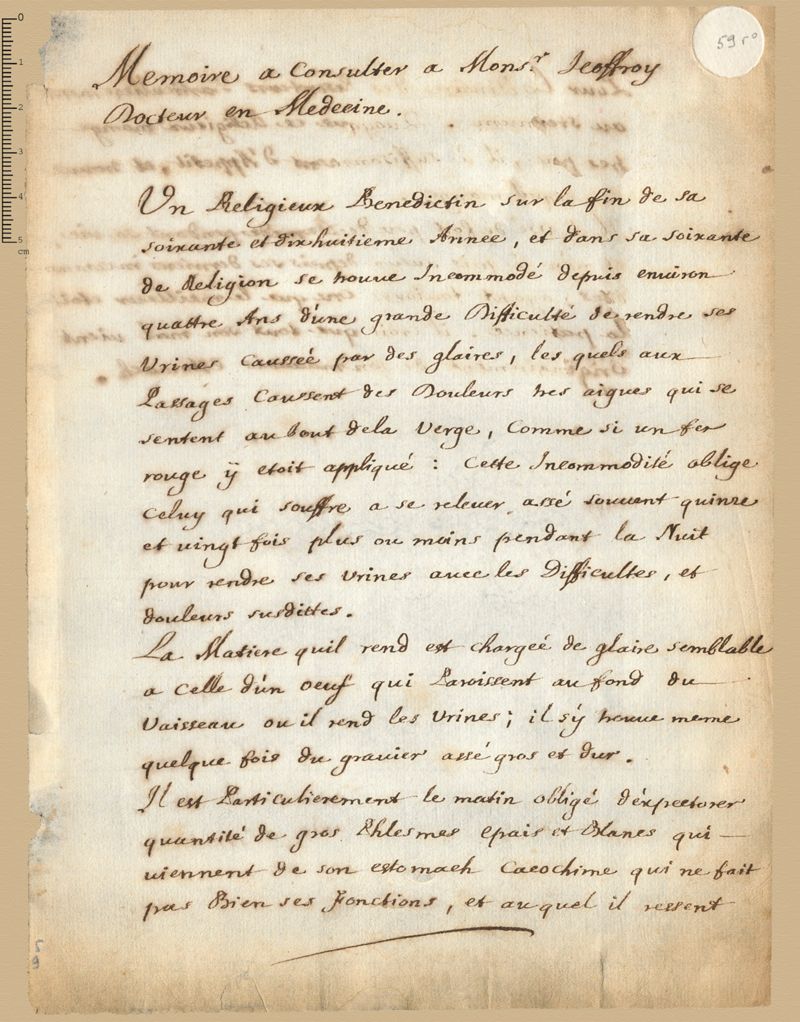 59 r°
Memoire a Consulter a Mons.r Jeoffroy
Docteur en Medecine.
Un Religieux Benedictin sur la fin de sa
soixante et dixhuitieme Année, et dans sa soixante
de Religion se trouve Incommodé depuis environ
quattre Ans d'une grande Difficulté de rendre ses
Urines Causseé par des glaires, les quels aux
Passages Caussent des Douleurs tres aigues qui se
sentent au bout dela Verge, Comme si un fer
rouge ÿ etoit appliqué : Cette Incommodité oblige
Celuy qui souffre a se relever assé souvent quinze
et vingt fois plus ou moins pendant la Nuit
pour rendre ses Urines avec les Difficultes, et
douleurs susdittes.
La Matiere quil rend est chargeé de glaire semblable
a Celle d'ún oeuf qui Paroissent au fond du
Vaisseau ou il rend les Urines ; il s'ÿ trouve meme
quelque fois du gravier assé gros et dur.
Il est Particulierement le matin obligé d'éxpectorer
quantité de gros Phlesmes epais et Blancs qui
viennent de son estomach Cacochime qui ne fait
pas Bien ses Fonctions, et au quel il ressent
59
0
1
2
3
4
5
cm